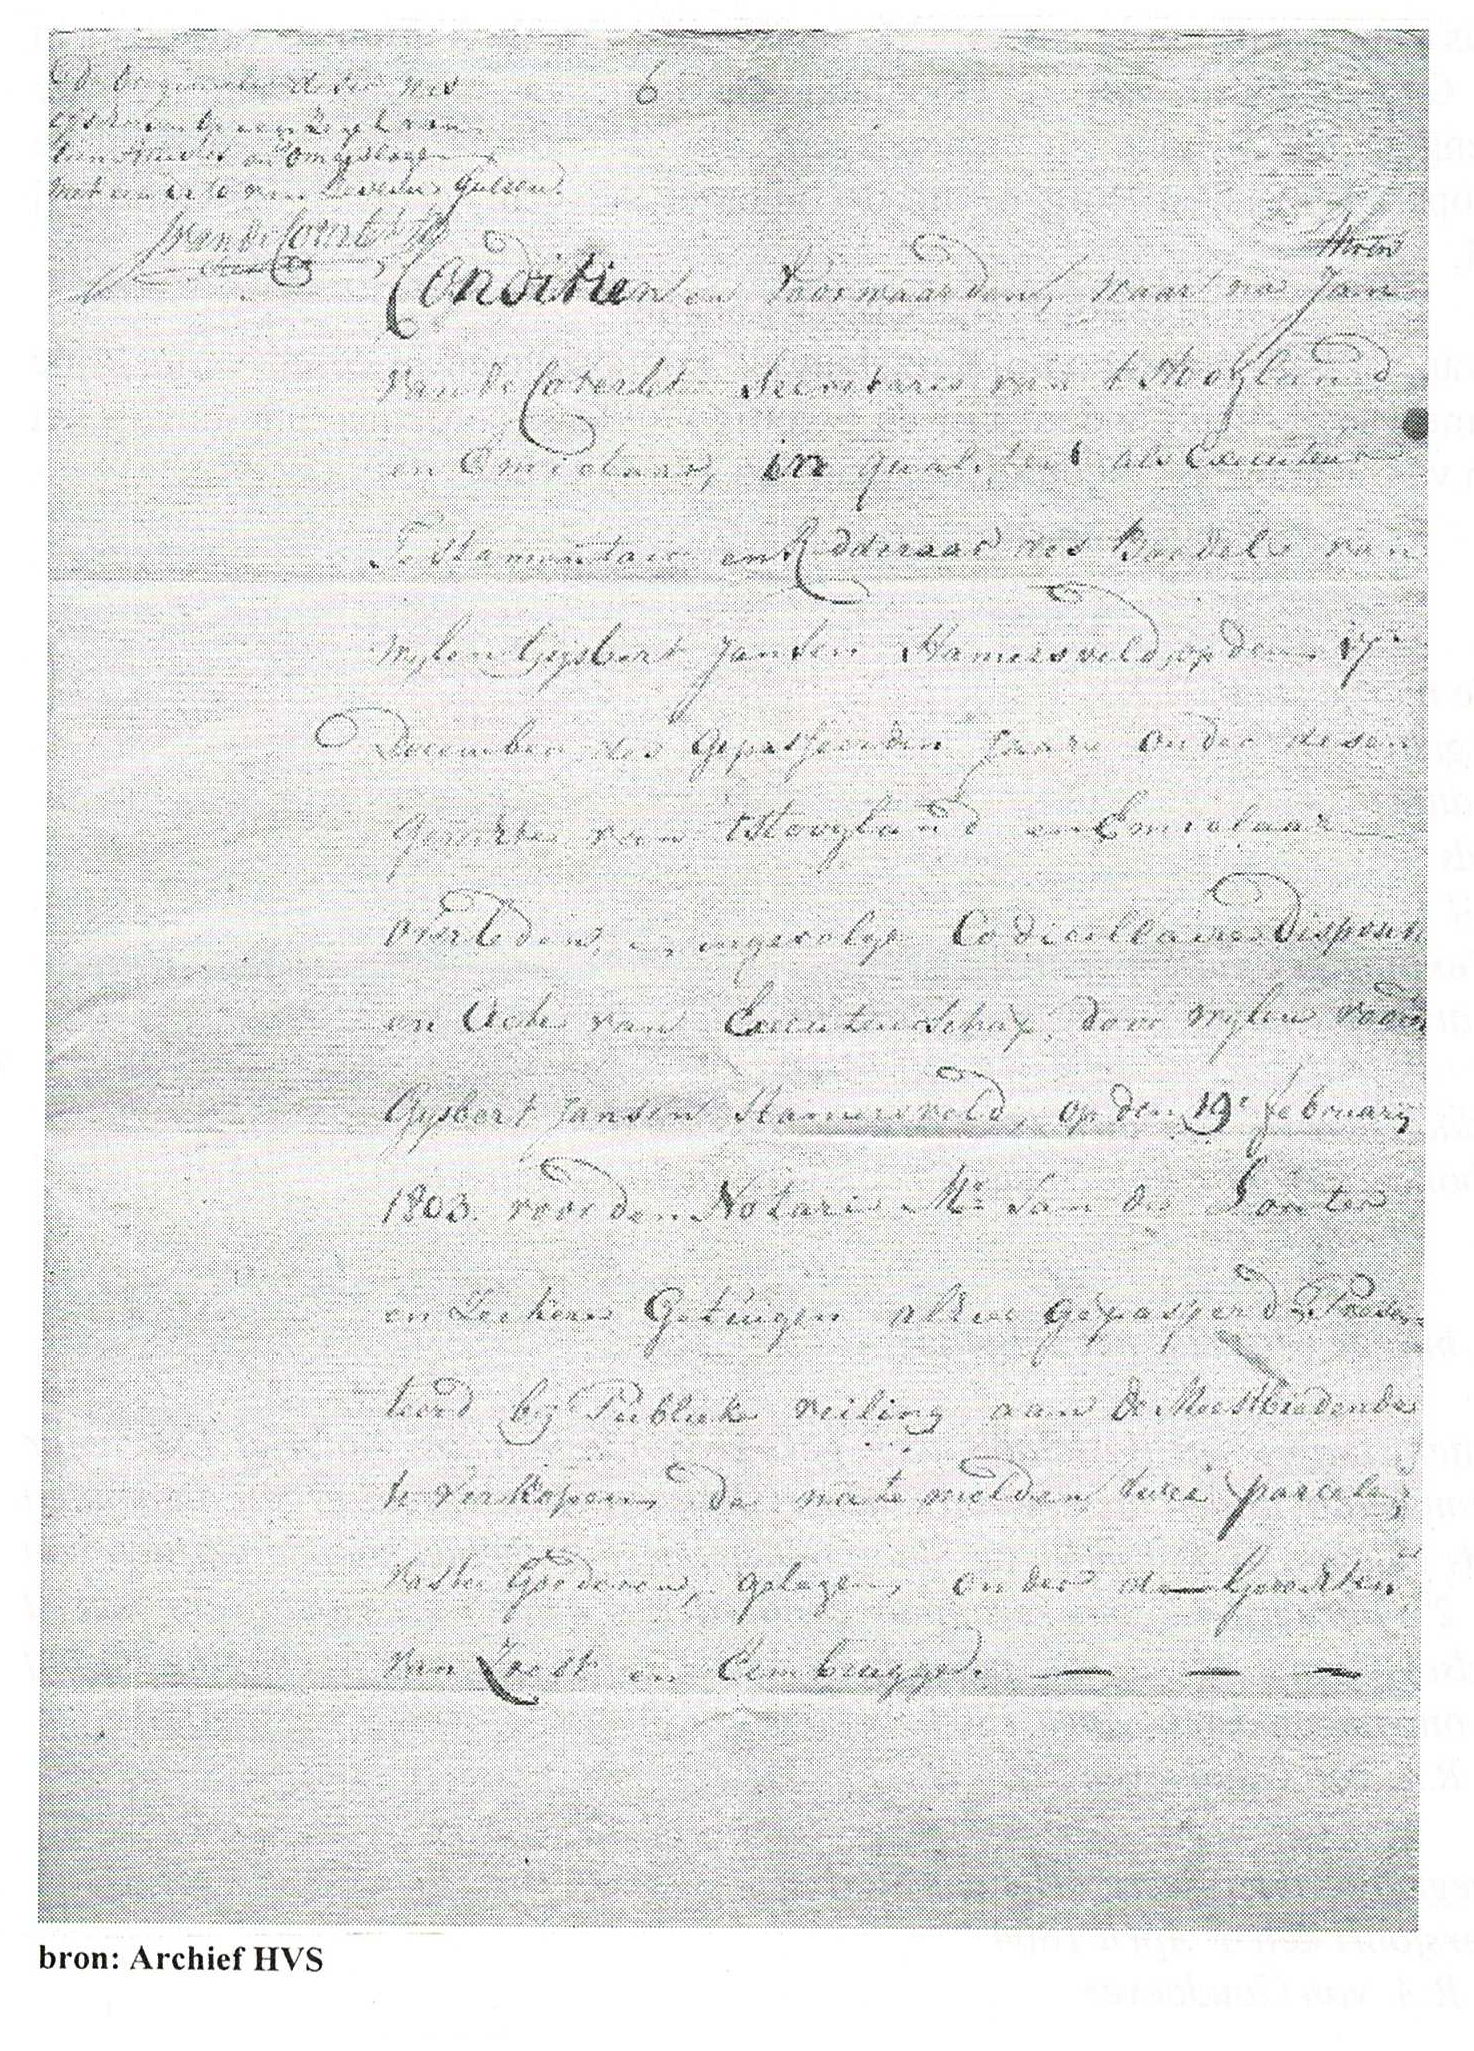 6
D' originele deser is
geschreven op een Zegel van
en omgeslagen
met een de te van Seven Gulden.
van de Coterlet
Conditien en Voorwaarden, Waar na Jan
van de Coterlet Secretaris van 't Hoogland
en Emiclaar, in qualiteit als Executeur
Testamentair en Redderaar des Boedels van
Wylen Gysbert Jansen Hamersveld, op den 17e
December des Gepasseerden Jaars onder desen
Gerechte van 't Hoogland en Emiclaar
overleden, ingevolge Codicellaire Disposit
en Acte van Executeurschap, door wylen voorn
Gysbert Jansen Hamersveld, op den 19e february
1803. voor den Notaris Mr. Jan de
en Zeekere Getuigen alhier gepasseerd, Presen-
teerd bij Publieke veiling aan de Meestbiedende
te verkopen, de nate melden twee parcelen
vaste Goederen, gelegen, onder de Gerechten
van Zoest en Eembrugge. — — —
bron: Archief HVS